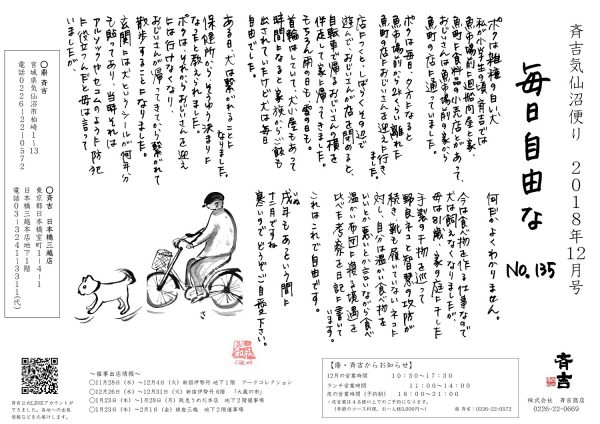 斉吉気仙沼便り 2018年12月号
毎日自由な No.135
ボクは雑種の白い犬
私が小学生の頃、斉吉では
魚市場前に廻船問屋と家、
魚町に食料品の小売店があって、
おじいさんは魚市場前の家から
魚町の店に通っていました。
ボクは毎日夕方になると
魚市場前から2kくらい離れた
魚町の店におじいさんを迎えに行き
店につくと、しばらくその辺で
遊んで、おじいさんが店を閉めると、
自転車で帰るおじいさんの横を
伴走して家に帰ってきました。
もちろん雨の日も雪の日も。
首輪はしていて、犬小屋もあって
時間になると家族からご飯も
出されていたけど犬は毎日
自由でした。
ある日、犬は繋がることに
なりました。
保健所からそういう決まりに
なったと教えられました。
ボクはそれからおじいさんを迎え
には行けなくなって
おじいさんが帰ってきてから繋がれて
散歩することになりました。
玄関には犬というシールが何年分
も貼ってあり、当時それは
アルソックやセコムのような防犯
に役立つんだと母は言って
いましたが、
何だかよくわかりません。
今は食べ物を作る仕事なので
犬は飼えなくなりましたが
母は81歳、家の庭に干した
手製の干物を巡って
野良ネコと智慧の攻防が
続き、靴も履いていないネコに
対し、自分は温かい食べ物を
いいとか悪いとか言いながら食べ
温かい布団に寝る境遇を
比べた考察を日記に書いて
います。
これはこれで自由です。
戌年もあという間に
いぬ
十二月ですね
寒いのでどうぞご自愛下さい。
さ
◎廟 斉吉
宮城県気仙沼市柏崎1-13
電話0226-22-0572
◎斉吉 日本橋三越店
東京都日本橋室町1-4-1
日本橋三越本店地下1階
電話03-3241-3311(代)
斉吉公式LINEアカウントが
できました。各地への出張
情報などお届けします。
〜催事出店情報〜
◎11月28日(水)〜12月4日(火)新宿伊勢丹 地下1階 フードコレクション
◎12月26日(水)〜12月31日(月)新宿伊勢丹6階 「大歳の市」
◎1月23日(水)〜1月28日(月)阪急うめだ本店 地下2階催事場
◎1月23日(水)〜2月1日(金)銀座三越 地下2階催事場
【廟・斉吉からお知らせ】
12月の営業時間 10:30〜17:30
ランチ営業時間 11:00〜14:00
夜の営業時間(予約制) 18:00〜21:00
・夜営業は4名様以上でのご予約になります。
(季節のコース料理、お一人様5,000円〜) 廟 斉吉:0226-22-0572
斉吉
株式会社 斉吉商店
0226-22-0669